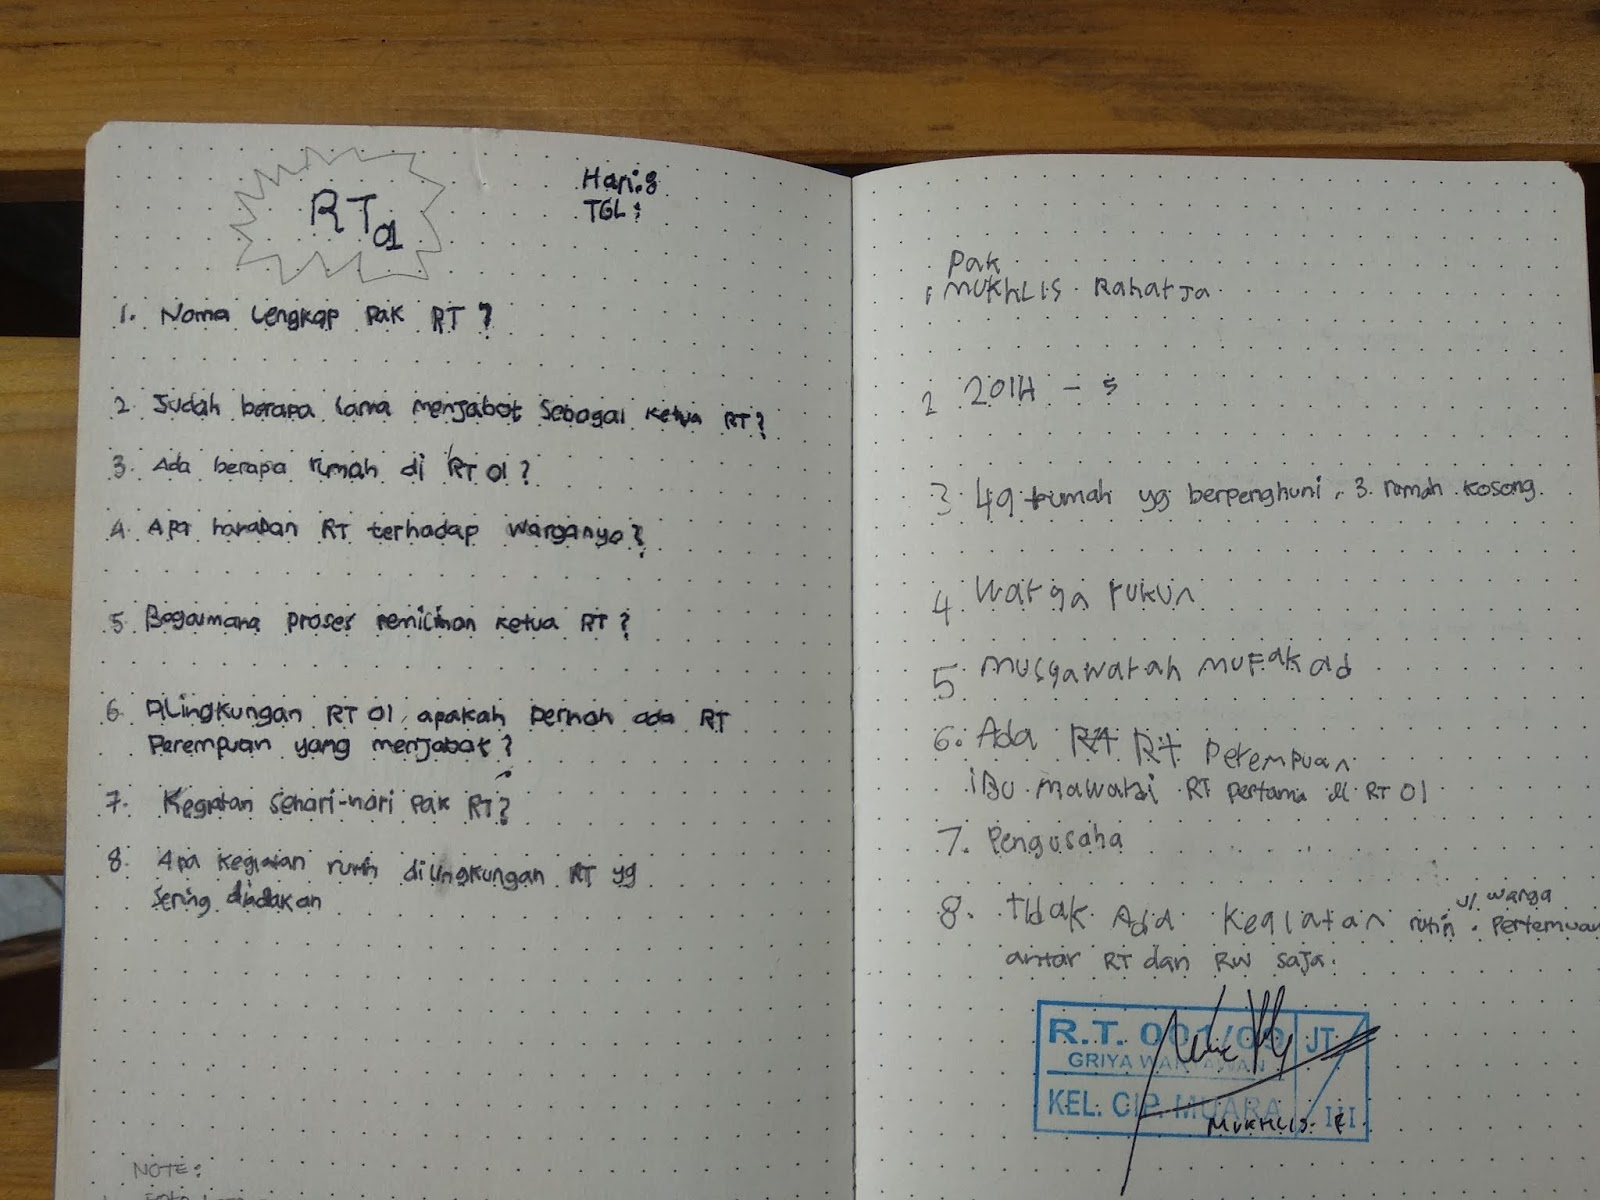 RT 01
Hari:
TGL:
1. Nama Lengkap Pak RT?
2. Sudah berapa lama menjabat sebagai ketua RT?
3. Ada berapa rumah di RT 01?
4. Apa harapan RT terhadap warganya?
5. Bagaimana proses pemilihan ketua RT?
6. Dilingkungan RT 01, apakah pernah ada RT
Perempuan yang menjabat?
7. Kegiatan sehari-hari Pak RT?
8. Apa kegiatan rutin dilingkungan RT yg
sering diadakan
NOTE:
Pak
1 MUKHLIS Rahatja
2 2014 - 5
3. 49 rumah yg berpenghuni, 3 rumah kosong.
4 Warga rukun
5. musyawarah mufakad
6. Ada RT Perempuan
ibu mawarsi RT pertama di RT 01
7. Pengusaha
8. tidak Ada Kegiatan rutin u/ warga. Pertemuan
antar RT dan RW saja.
R.T. 001/09 JT
GRIYA WARTAWAN
KEL. CIP. MUARA III
MUKHLIS R